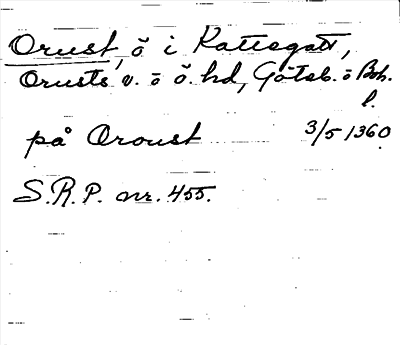 Orust, ö i Kattegatt,
Orusts v. o ö. hd, Göteb. o Boh.
l.
på Oroust 3/5 1360
S.R.P. nr. 455.